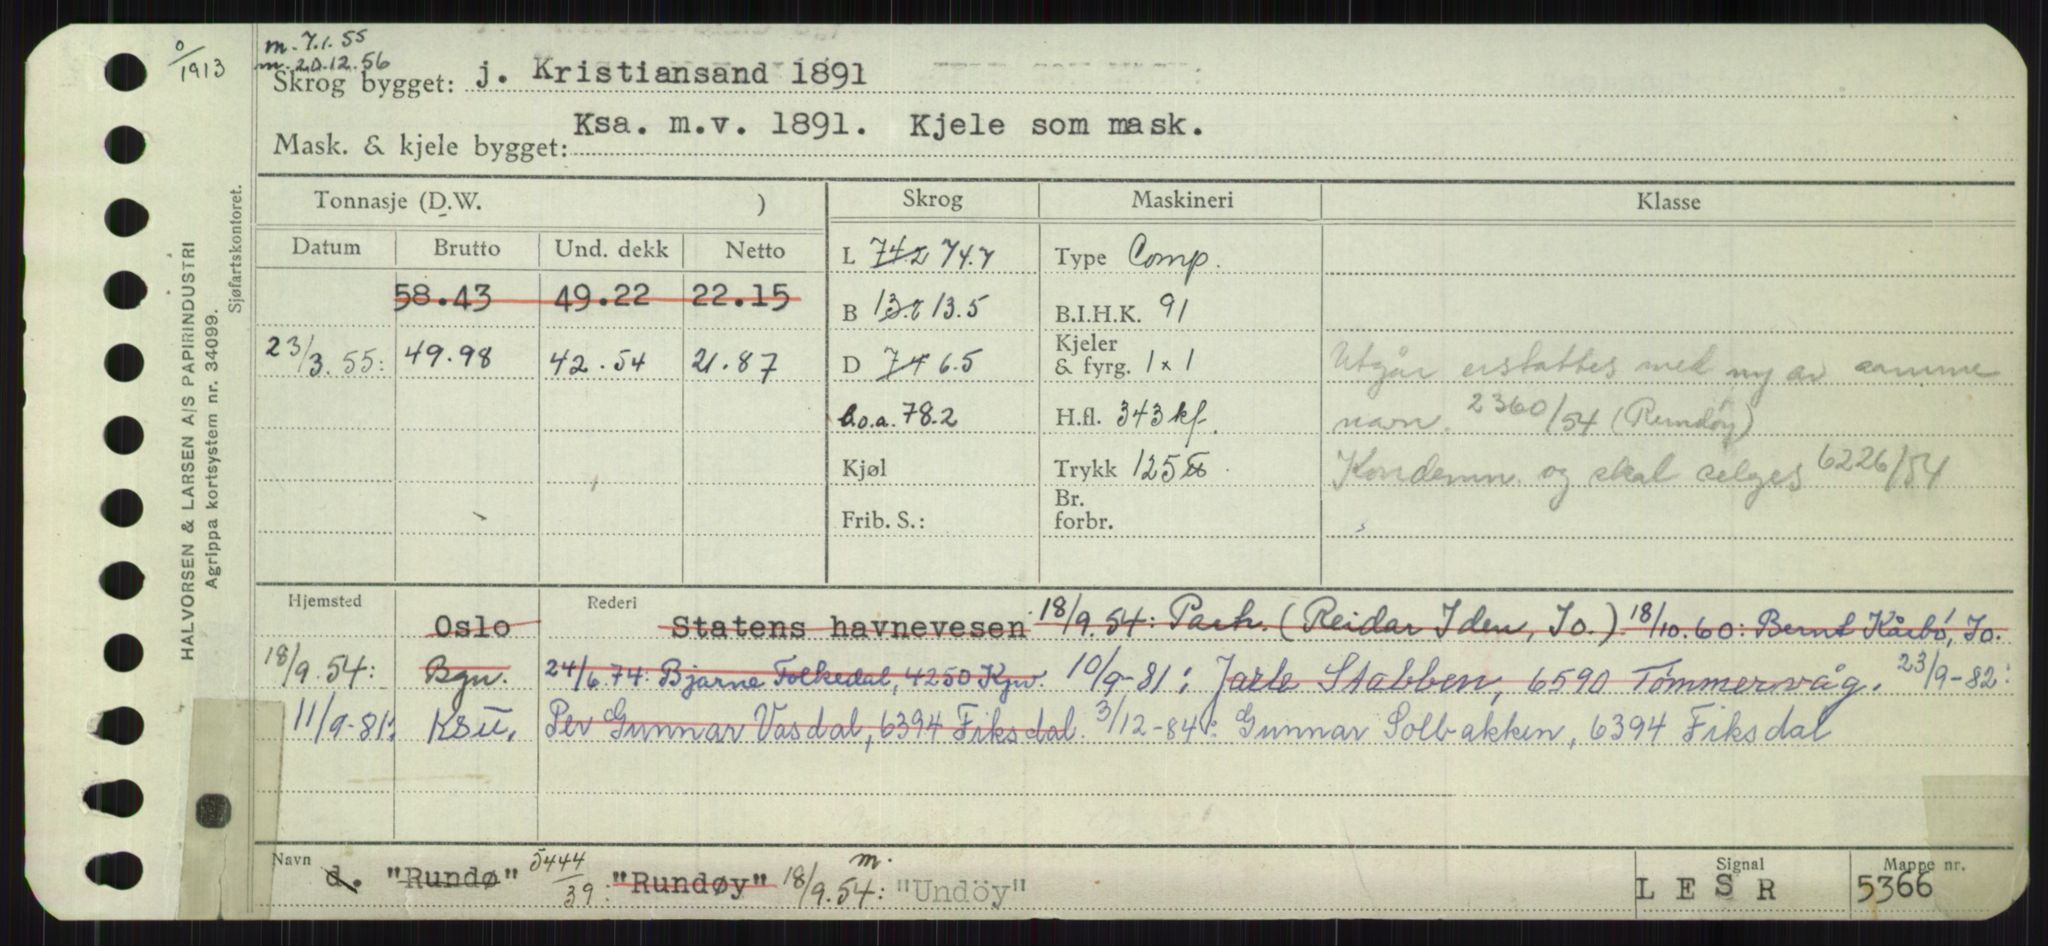 0/1913
m. 7.1.55
m. 20.12.56
Skrog bygget: j. Kristiansand 1891
Mask. & kjele bygget: Ksa. m.v. 1891. Kjele som mask.
HALVORSEN & LARSEN A/S PAPIRINDUSTRI
Agrippa kortsystem nr. 34099.
Sjøfartskontoret.
Tonnasje (D.W. ) Skrog Maskineri Klasse
Datum Brutto Und. dekk Netto L 74.2 74.7 Type Comp.
58.43 49.22 22.15 B 13.5 B.I.H.K. 91
23/3.55: 49.98 42.54 21.87 D 7.4 6.5 Kjeler & fyrg. 1 x 1 Utgår erstattes med ny av samme
L.o.a. 78.2 H.fl. 343 kf. navn. 2360/54 (Rundöy)
Kjøl Trykk 125 lb. Kondemn. og skal selges 6226/54
Frib. S.: Br. forbr.
Hjemsted Rederi
Oslo Statens havnevesen 18/9.54: Parh. (Reidar Iden, Io.) 18/10.60: Bernt Kårbö, Io.
18/9.54: Bgn. 24/6.74: Bjarne Folkedal, 4250 Kpv. 10/9-81: Jarle Stabben, 6590 Tömmervåg. 23/9-82:
11/9-81: Ksu. Per Gunnar Vasdal, 6394 Fiksdal. 3/12-84: Gunnar Solbakken, 6394 Fiksdal
Navn Signal Mappe nr.
d. "Rundø" 5444/39: "Rundøy" 18/9.54: m. "Undöy" L E S R 5366